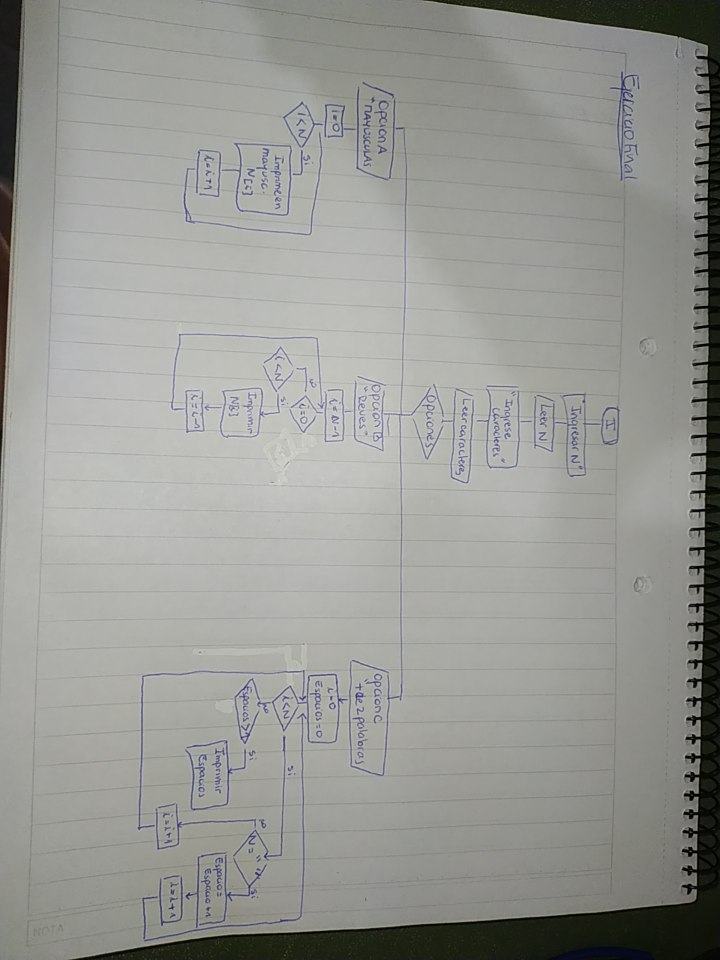 Ejercicio Final
I
"Ingresar N"
Leer N
"Ingrese
caracteres"
Leer caracteres
Opciones
Opcion A
"mayusculas"
i=0
i<N
si
Imprime en
mayusc:
N[i]
i=i+1
Opcion B
"Reves"
i=N-1
i=0
i<N
si
Imprimir
i=i-1
Opcion C
"+ de 2 palabras"
i=0
Espacios=0
i<N
si
Espacios>1
si
Imprimir
Espacios
N=" "
si
Espacio=
Espacio+1
i=i+1
i=i+1
NOTA